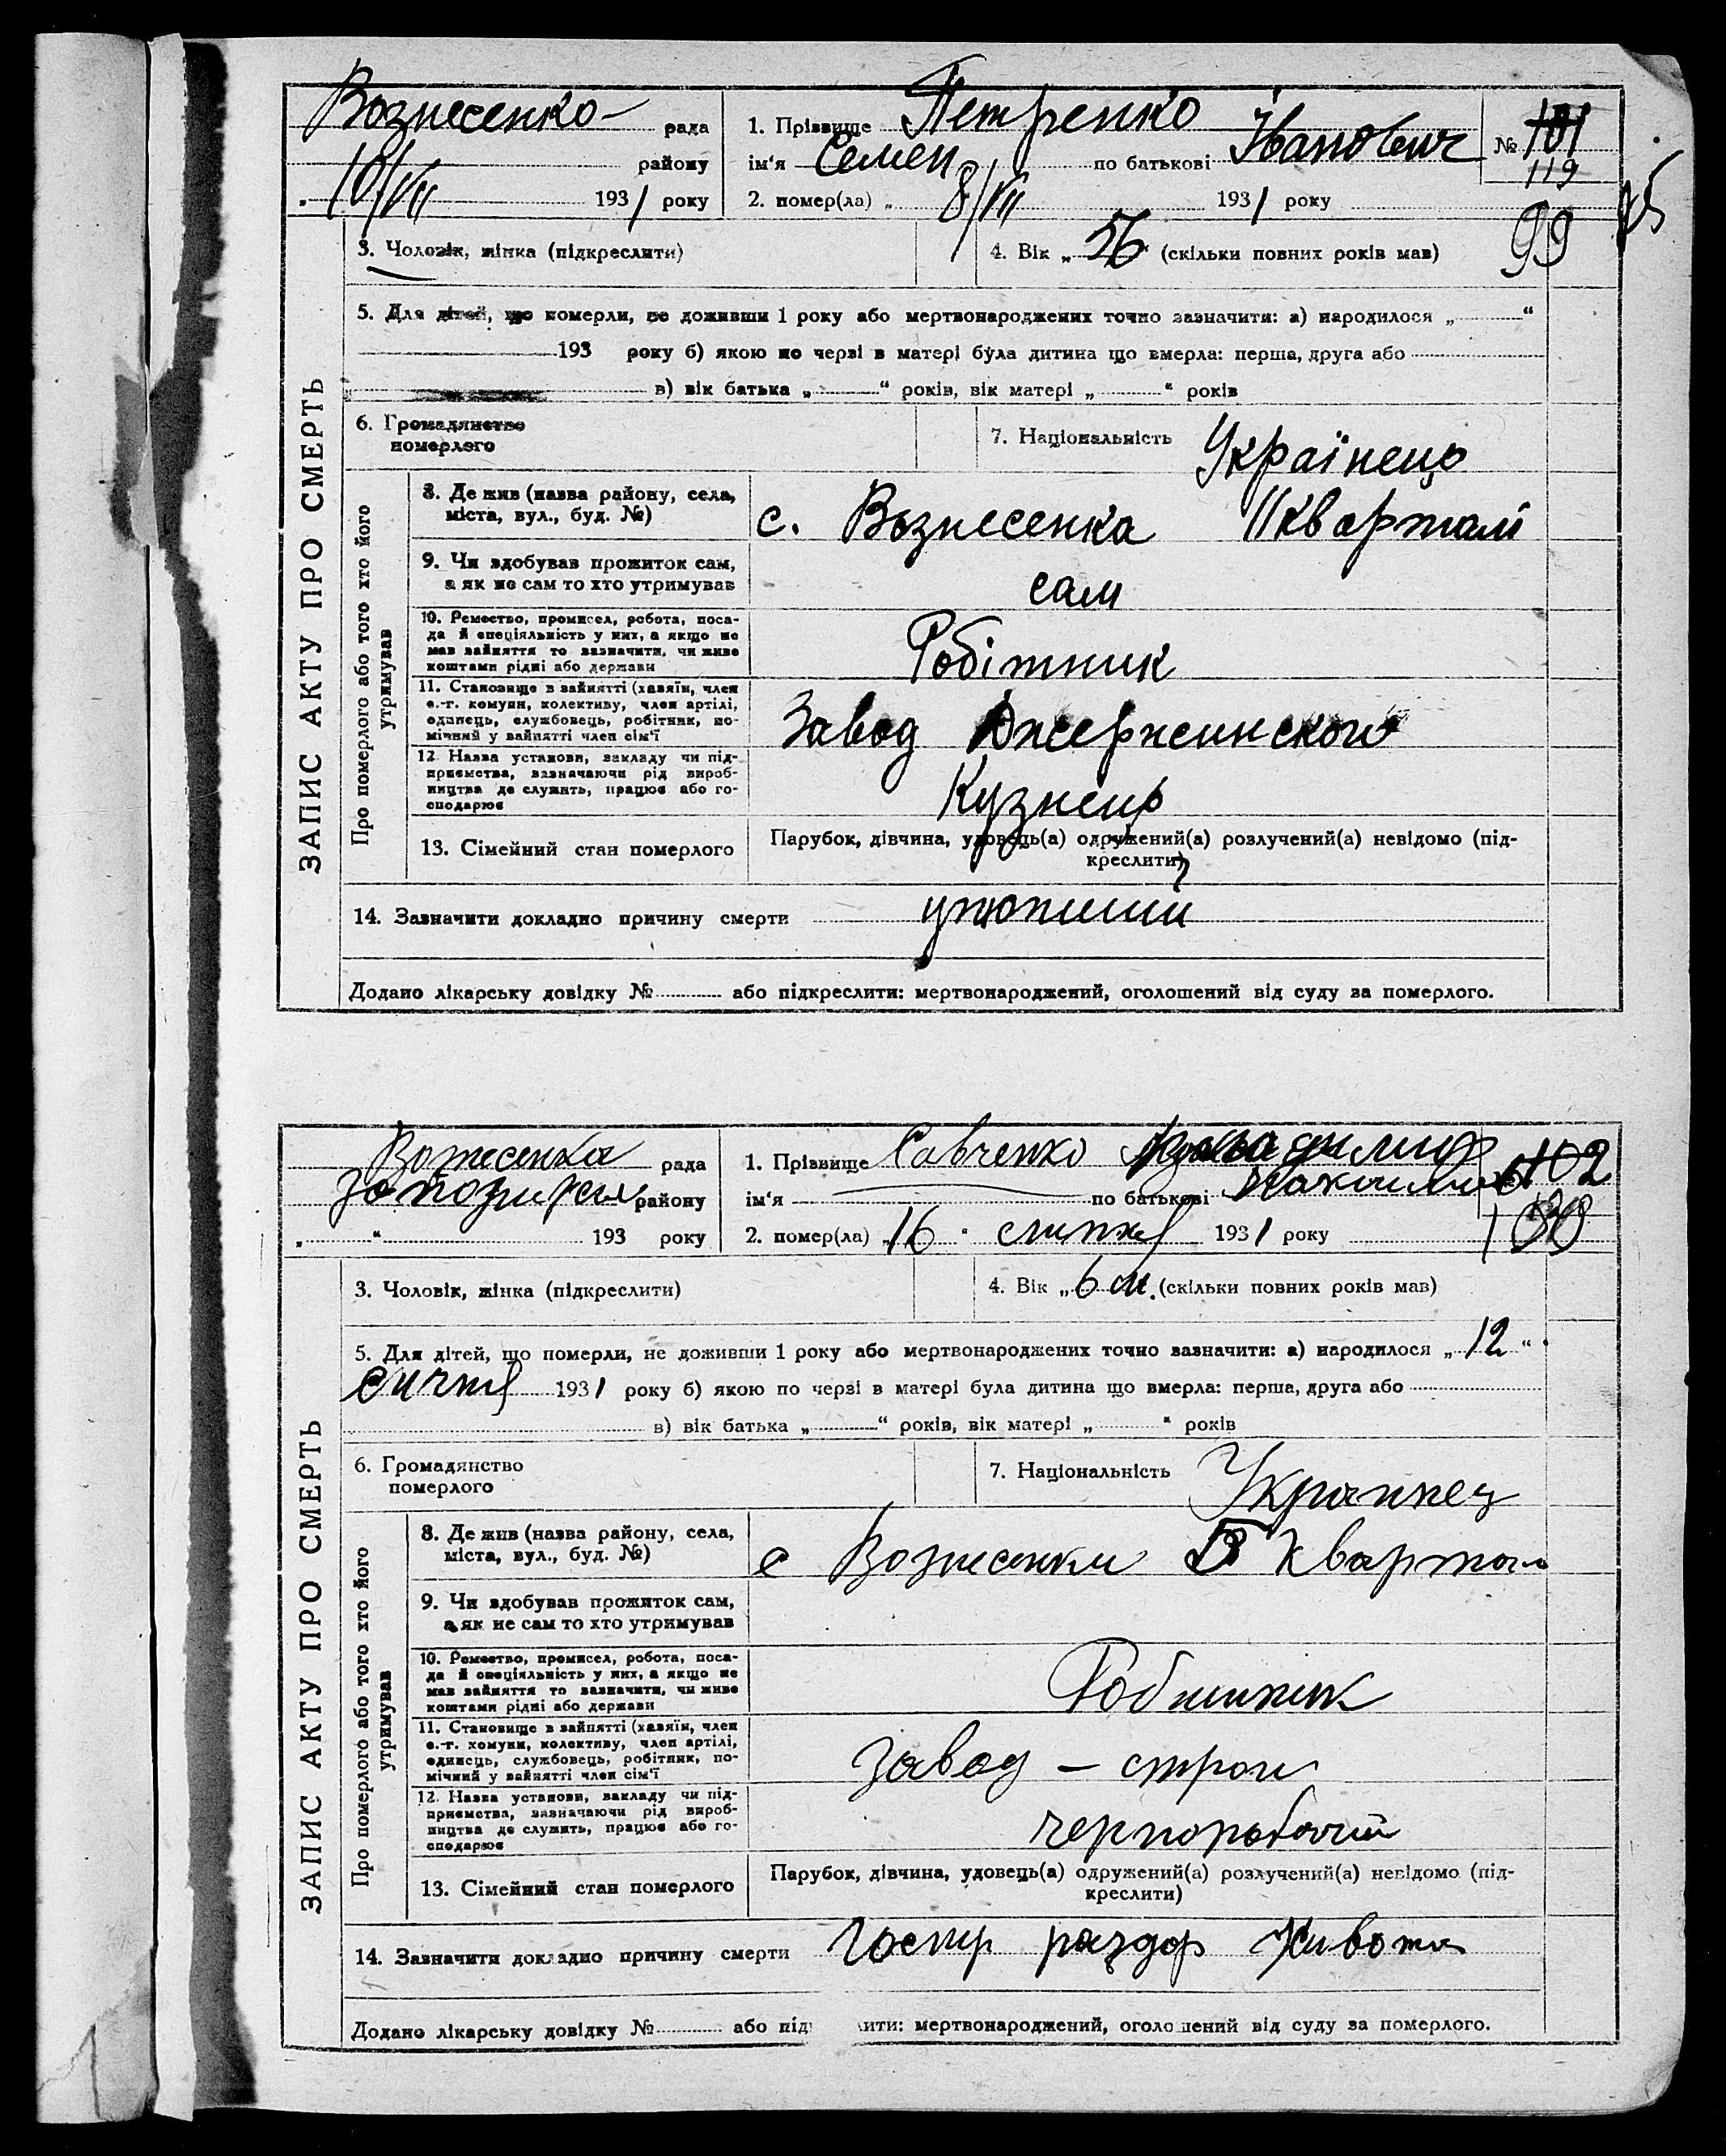 Вознесенко- рада
района
10/VII 1931 року
1. Прізвище Петренко
ім'я Семен по батькові Іванович
2. помер(ла) „ 8/VII 1931 року
№ 101
119
99
3. Чоловік, жінка (підкреслити)
4. Вік „ 56 “ (скільки повних років мав)
5. Для дітей, що померли, не доживши 1 року або мертвонароджених точно зазначити: а) народилося „ “
193 року б) якою по черзі в матері була дитина що вмерла: перша, друга або
в) вік батька „ “ років, вік матері „ “ років
6. Громадянство
померлого
7. Національність Українець
ЗАПИС АКТУ ПРО СМЕРТЬ
Про померлого або того хто його
утримував
8. Де жив (назва району, села,
міста, вул., буд. №)
с. Вознесенка II квартал
9. Чи здобував прожиток сам,
а як не сам то хто утримував
сам
10. Ремество, промисел, робота, поса-
да й спеціяльність у них, а якщо не
мав зайняття то зазначити, чи живе
коштами рідні або держави
Робітник
11. Становище в зайнятті (хазяїн, член
с.-г. комуни, колективу, член артілі,
одинець, службовець, робітник, по-
мічний у зайнятті член сім'ї
Завод Джержинского
12. Назва установи, закладу чи під-
приємства, зазначаючи рід вироб-
ництва де служить, працює або го-
сподарює
Кузнець
13. Сімейний стан померлого
Парубок, дівчина, удовець(а) одружений(а) розлучений(а) невідомо (під-
креслити)
14. Зазначити докладно причину смерти
Додано лікарську довідку № або підкреслити: мертвонароджений, оголошений від суду за померлого.
Вознесенка рада
району
„ “ 193 року
1. Прізвище Савченко
ім'я по батькові
2. помер(ла) „ 16 “ липня 1931 року
102
3. Чоловік, жінка (підкреслити)
4. Вік „ 6 м. (скільки повних років мав)
5. Для дітей, що померли, не доживши 1 року або мертвонароджених точно зазначити: а) народилося „ 12 “
Січня 1931 року б) якою по черзі в матері була дитина що вмерла: перша, друга або
в) вік батька „ “ років, вік матері „ “ років
6. Громадянство
померлого
7. Національність Украинец
ЗАПИС АКТУ ПРО СМЕРТЬ
Про померлого або того хто його
утримував
8. Де жив (назва району, села,
міста, вул., буд. №)
с Вознесенки квартал
9. Чи здобував прожиток сам,
а як не сам то хто утримував
10. Ремество, промисел, робота, поса-
да й спеціяльність у них, а якщо не
мав зайняття то зазначити, чи живе
коштами рідні або держави
Робитник
11. Становище в зайнятті (хазяїн, член
с.-г. комуни, колективу, член артілі,
одинець, службовець, робітник, по-
мічний у зайнятті член сім'ї
завод – строи
12. Назва установи, закладу чи під-
приємства, зазначаючи рід вироб-
ництва де служить, працює або го-
сподарює
чернорабочий
13. Сімейний стан померлого
Парубок, дівчина, удовець(а) одружений(а) розлучений(а) невідомо (під-
креслити)
14. Зазначити докладно причину смерти Гостр раздор живота
Додано лікарську довідку № або під ити: мертвонароджений, оголошений від суду за померлого.